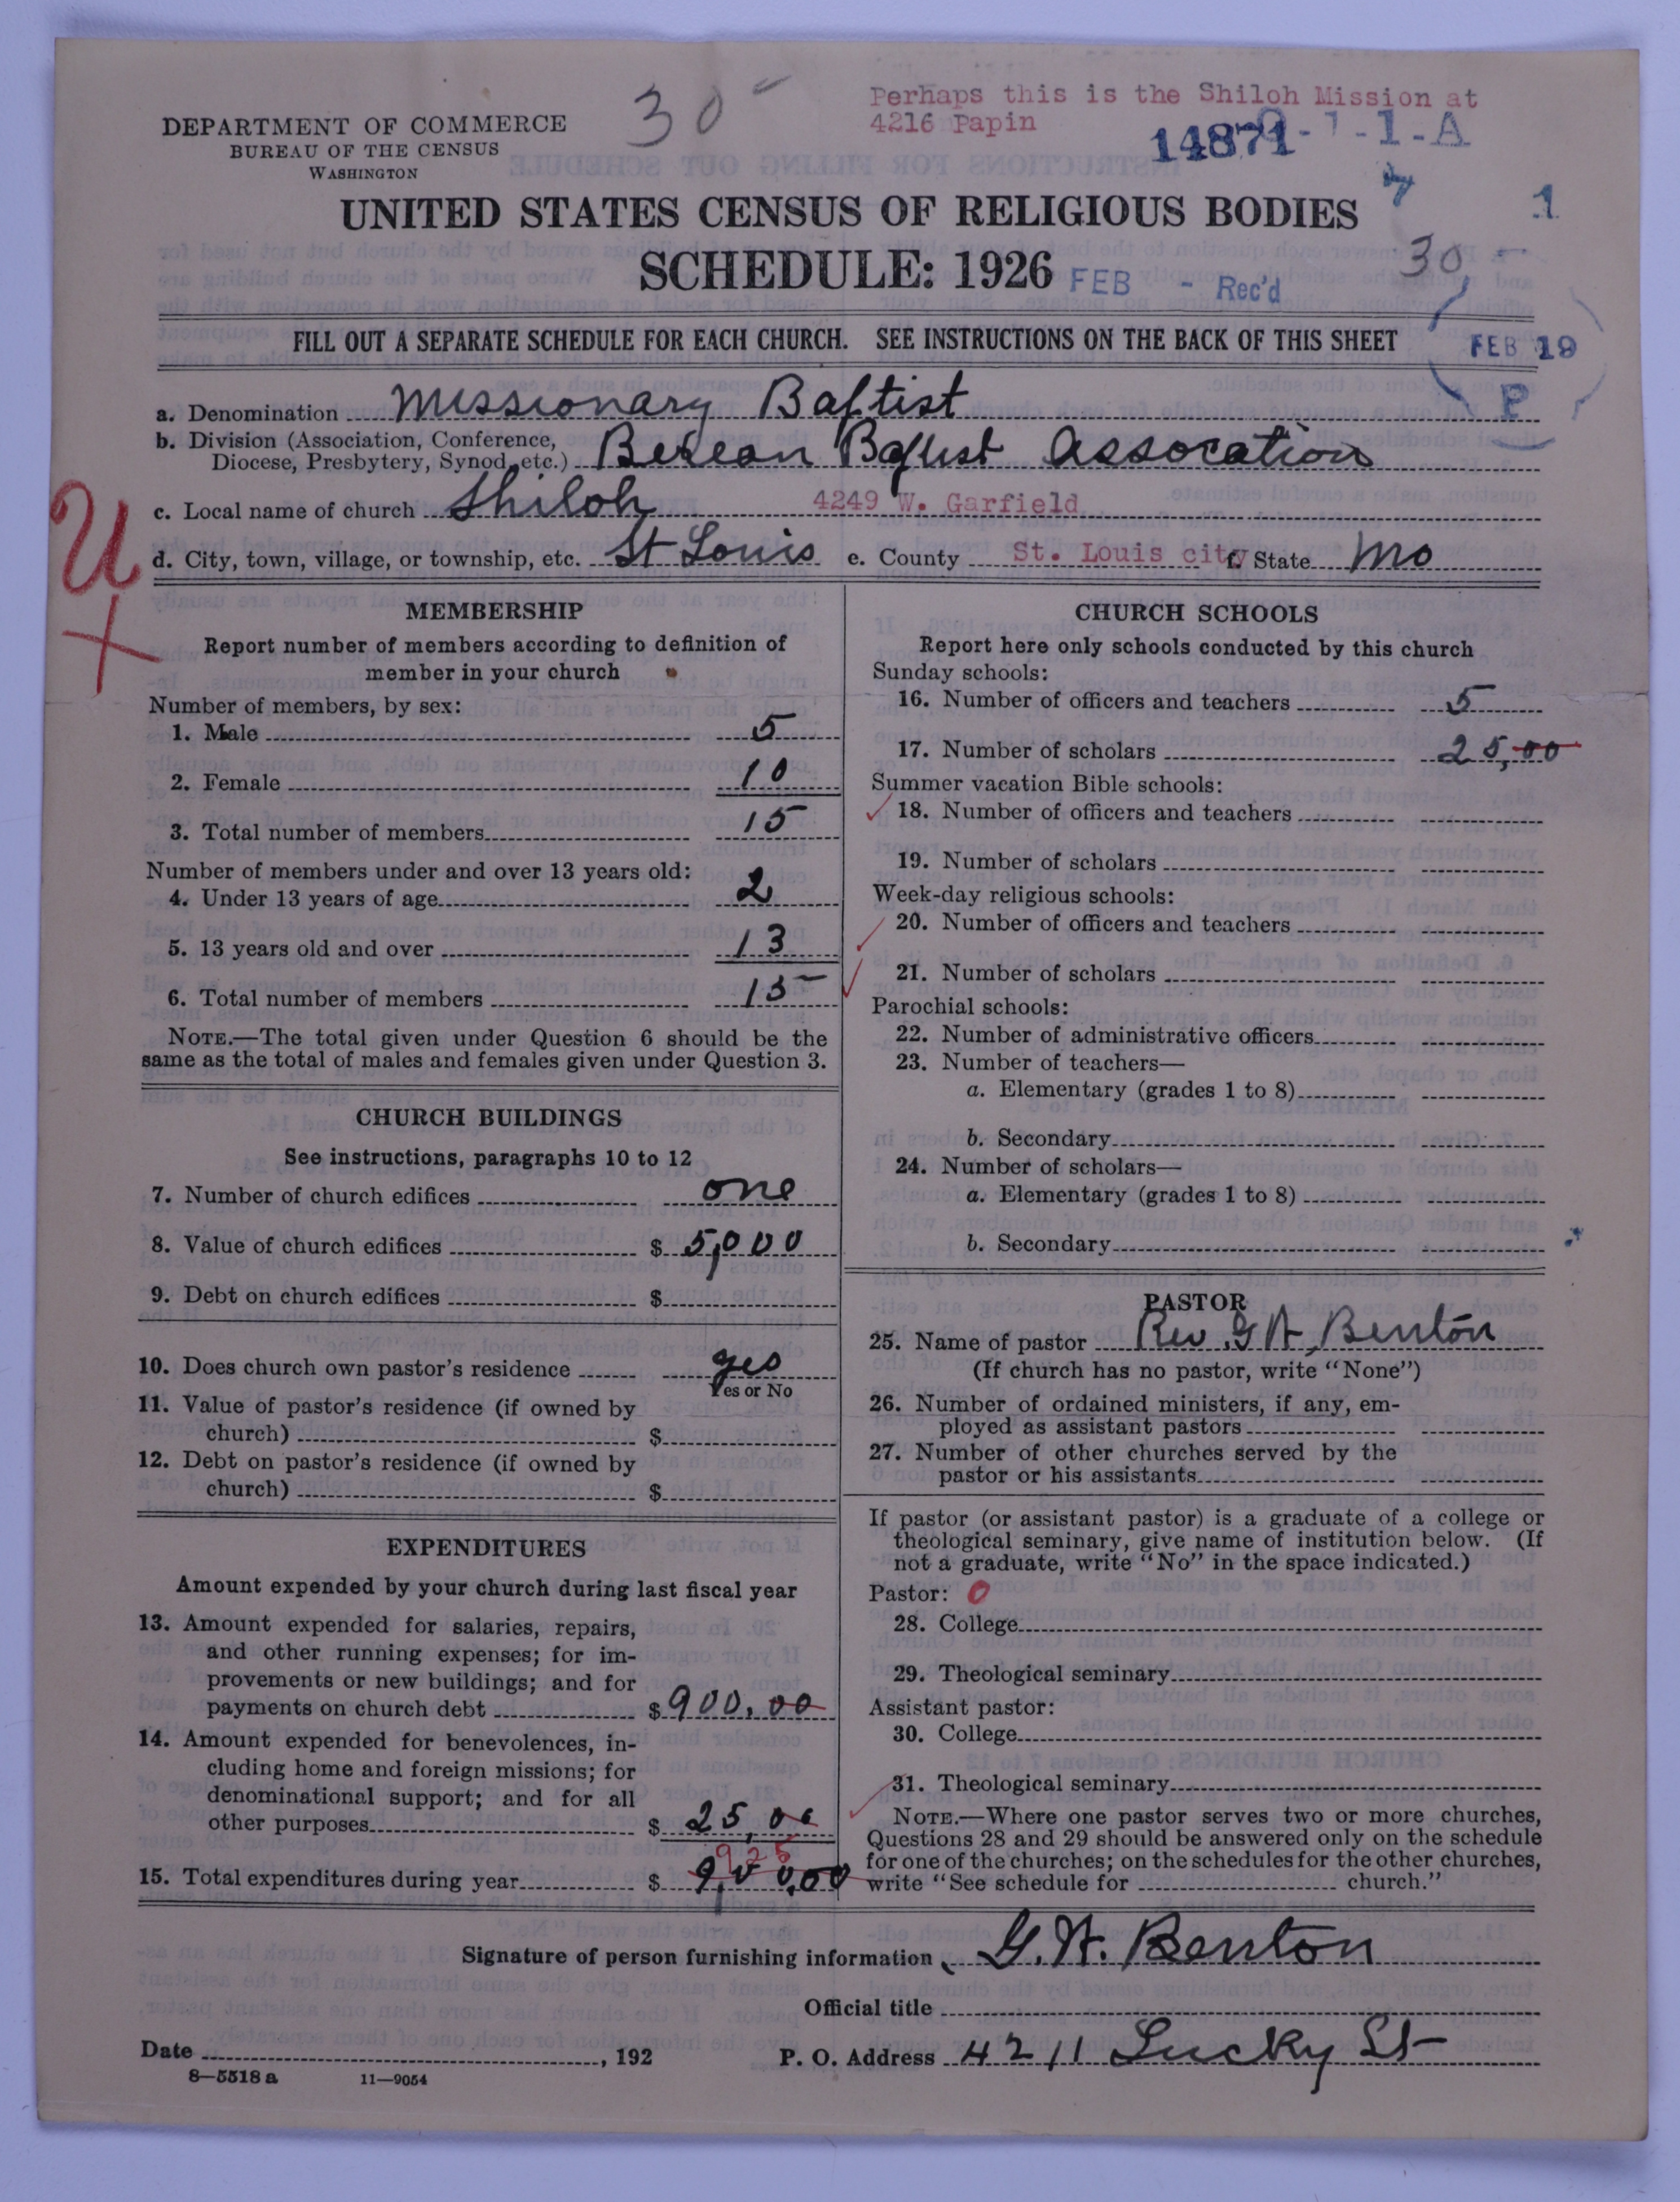 30-
Perhaps this is the Shiloh Mission at
4216 Papin
DEPARTMENT OF COMMERCE
BUREAU OF THE CENSUS
WASHINGTON
14871
-1-A
UNITED STATES CENSUS OF RELIGIOUS BODIES
1
SCHEDULE: 1926
FEB - Rec'd
30
FILL OUT A SEPARATE SCHEDULE FOR EACH CHURCH. SEE INSTRUCTIONS ON THE BACK OF THIS SHEET
FEB 19
P
a. Denomination Missionary Baftist
b. Division (Association, Conference,
Diocese, Presbytery, Synod, etc.) Berean Baptist Assocation
c. Local name of church Shiloh 4249 W. Garfield
d. City, town, village, or township, etc. St Louis e. County St. Louis city f. State Mo
U
MEMBERSHIP
Report number of members according to definition of
member in your church
Number of members, by sex:
1. Male 5
2. Female 10
3. Total number of members 15
Number of members under and over 13 years old:
4. Under 13 years of age 2
5. 13 years old and over 13
6. Total number of members 15
NOTE.—The total given under Question 6 should be the
same as the total of males and females given under Question 3.
CHURCH BUILDINGS
See instructions, paragraphs 10 to 12
7. Number of church edifices one
8. Value of church edifices $ 5,000
9. Debt on church edifices $
10. Does church own pastor's residence yes
Yes or No
11. Value of pastor's residence (if owned by
church) $
12. Debt on pastor's residence (if owned by
church) $
EXPENDITURES
Amount expended by your church during last fiscal year
13. Amount expended for salaries, repairs,
and other running expenses; for im-
provements or new buildings; and for
payments on church debt $ 900.00
14. Amount expended for benevolences, in-
cluding home and foreign missions; for
denominational support; and for all
other purposes $ 25,00
925
15. Total expenditures during year $ 9,00,00
CHURCH SCHOOLS
Report here only schools conducted by this church
Sunday schools:
16. Number of officers and teachers 5
17. Number of scholars 25,00
Summer vacation Bible schools:
18. Number of officers and teachers
19. Number of scholars
Week-day religious schools:
20. Number of officers and teachers
21. Number of scholars
Parochial schools:
22. Number of administrative officers
23. Number of teachers—
a. Elementary (grades 1 to 8)
b. Secondary
24. Number of scholars—
a. Elementary (grades 1 to 8)
b. Secondary
PASTOR
25. Name of pastor Rev. G A, Benton
(If church has no pastor, write "None")
26. Number of ordained ministers, if any, em-
ployed as assistant pastors
27. Number of other churches served by the
pastor or his assistants
If pastor (or assistant pastor) is a graduate of a college or
theological seminary, give name of institution below. (If
not a graduate, write "No" in the space indicated.)
Pastor: 0
28. College
29. Theological seminary
Assistant pastor:
30. College
31. Theological seminary
NOTE.—Where one pastor serves two or more churches,
Questions 28 and 29 should be answered only on the schedule
for one of the churches; on the schedules for the other churches,
write "See schedule for church."
Signature of person furnishing information G. A. Benton
Official title
Date , 192
P. O. Address 4211 Lucky St
8—5518 a 11—9054